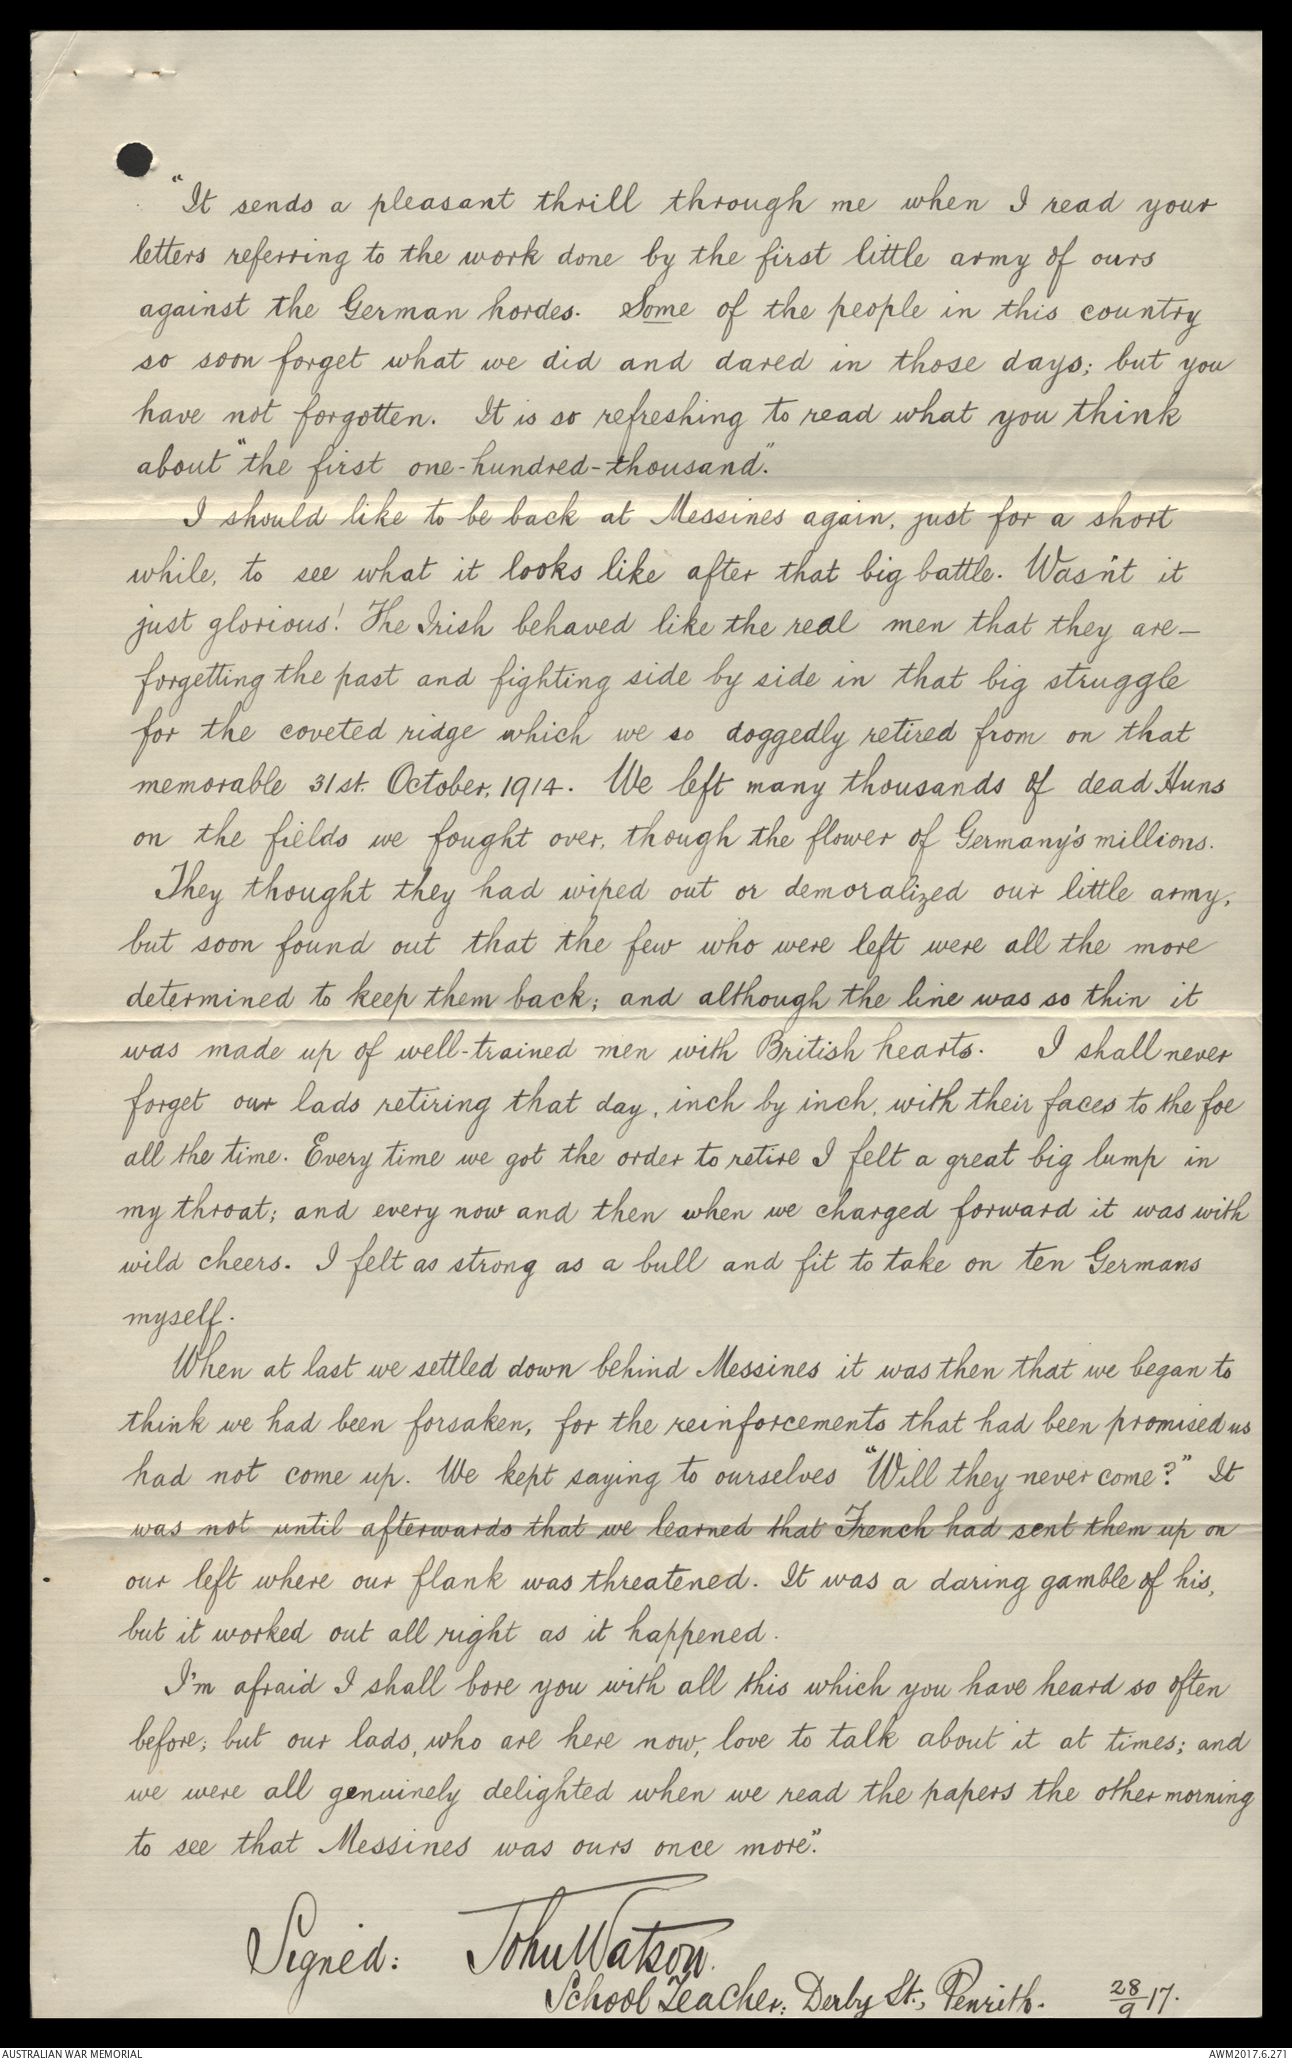 "It sends a pleasant thrill through me when I read your
letters referring to the work done by the first little army of ours
against the German hordes. Some of the people in this country
so soon forget what we did and dared in those days; but you
have not forgotten. It is so refreshing to read what you think
about "the first one-hundred-thousand".
I should like to be back at Messines again, just for a short
while, to see what it looks like after that big battle. Wasn't it
just glorious! The Irish behaved like the real men that they are—
forgetting the past and fighting side by side in that big struggle
for the coveted ridge which we so doggedly retired from on that
memorable 31st. October, 1914. We left many thousands of dead Huns
on the fields we fought over, though the flower of Germany's millions.
They thought they had wiped out or demoralized our little army,
but soon found out that the few who were left were all the more
determined to keep them back; and although the line was so thin it
was made up of well-trained men with British hearts. I shall never
forget our lads retiring that day, inch by inch, with their faces to the foe
all the time. Every time we got the order to retire I felt a great big lump in
my throat; and every now and then when we charged forward it was with
wild cheers. I felt as strong as a bull and fit to take on ten Germans
myself.
When at last we settled down behind Messines it was then that we began to
think we had been forsaken, for the reinforcements that had been promised us
had not come up. We kept saying to ourselves "Will they never come?" It
was not until afterwards that we learned that French had sent them up on
our left where our flank was threatened. It was a daring gamble of his,
but it worked out all right as it happened.
I'm afraid I shall bore you with all this which you have heard so often
before; but our lads, who are here now, love to talk about it at times; and
we were all genuinely delighted when we read the papers the other morning
to see that Messines was ours once more".
Signed: John Watson.
School Teacher, Derby St., Penrith. 28/9 17.
AUSTRALIAN WAR MEMORIAL AWM2017.6.271